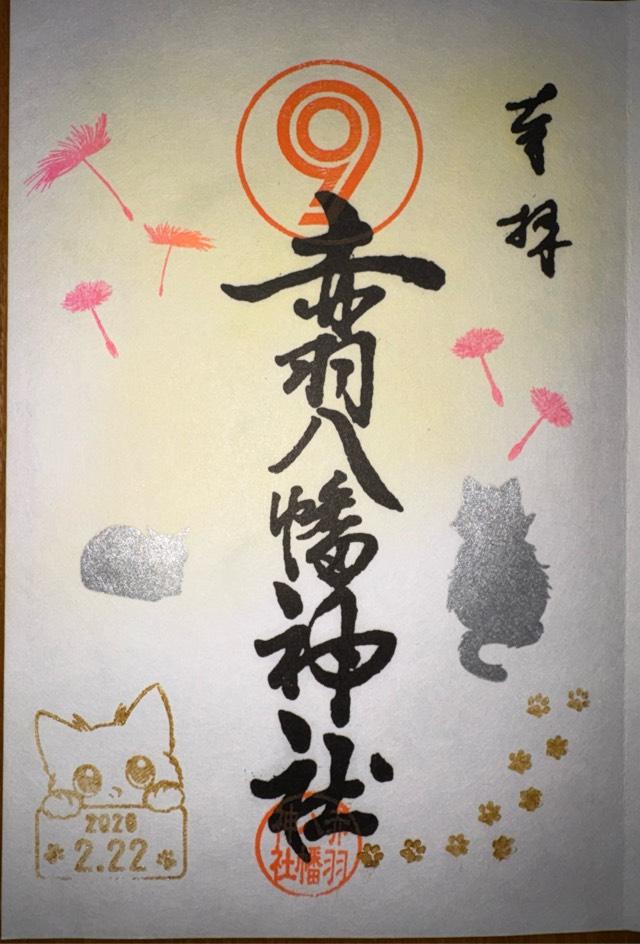 奉拝
赤羽八幡神社
赤羽八幡神社
2026
2.22